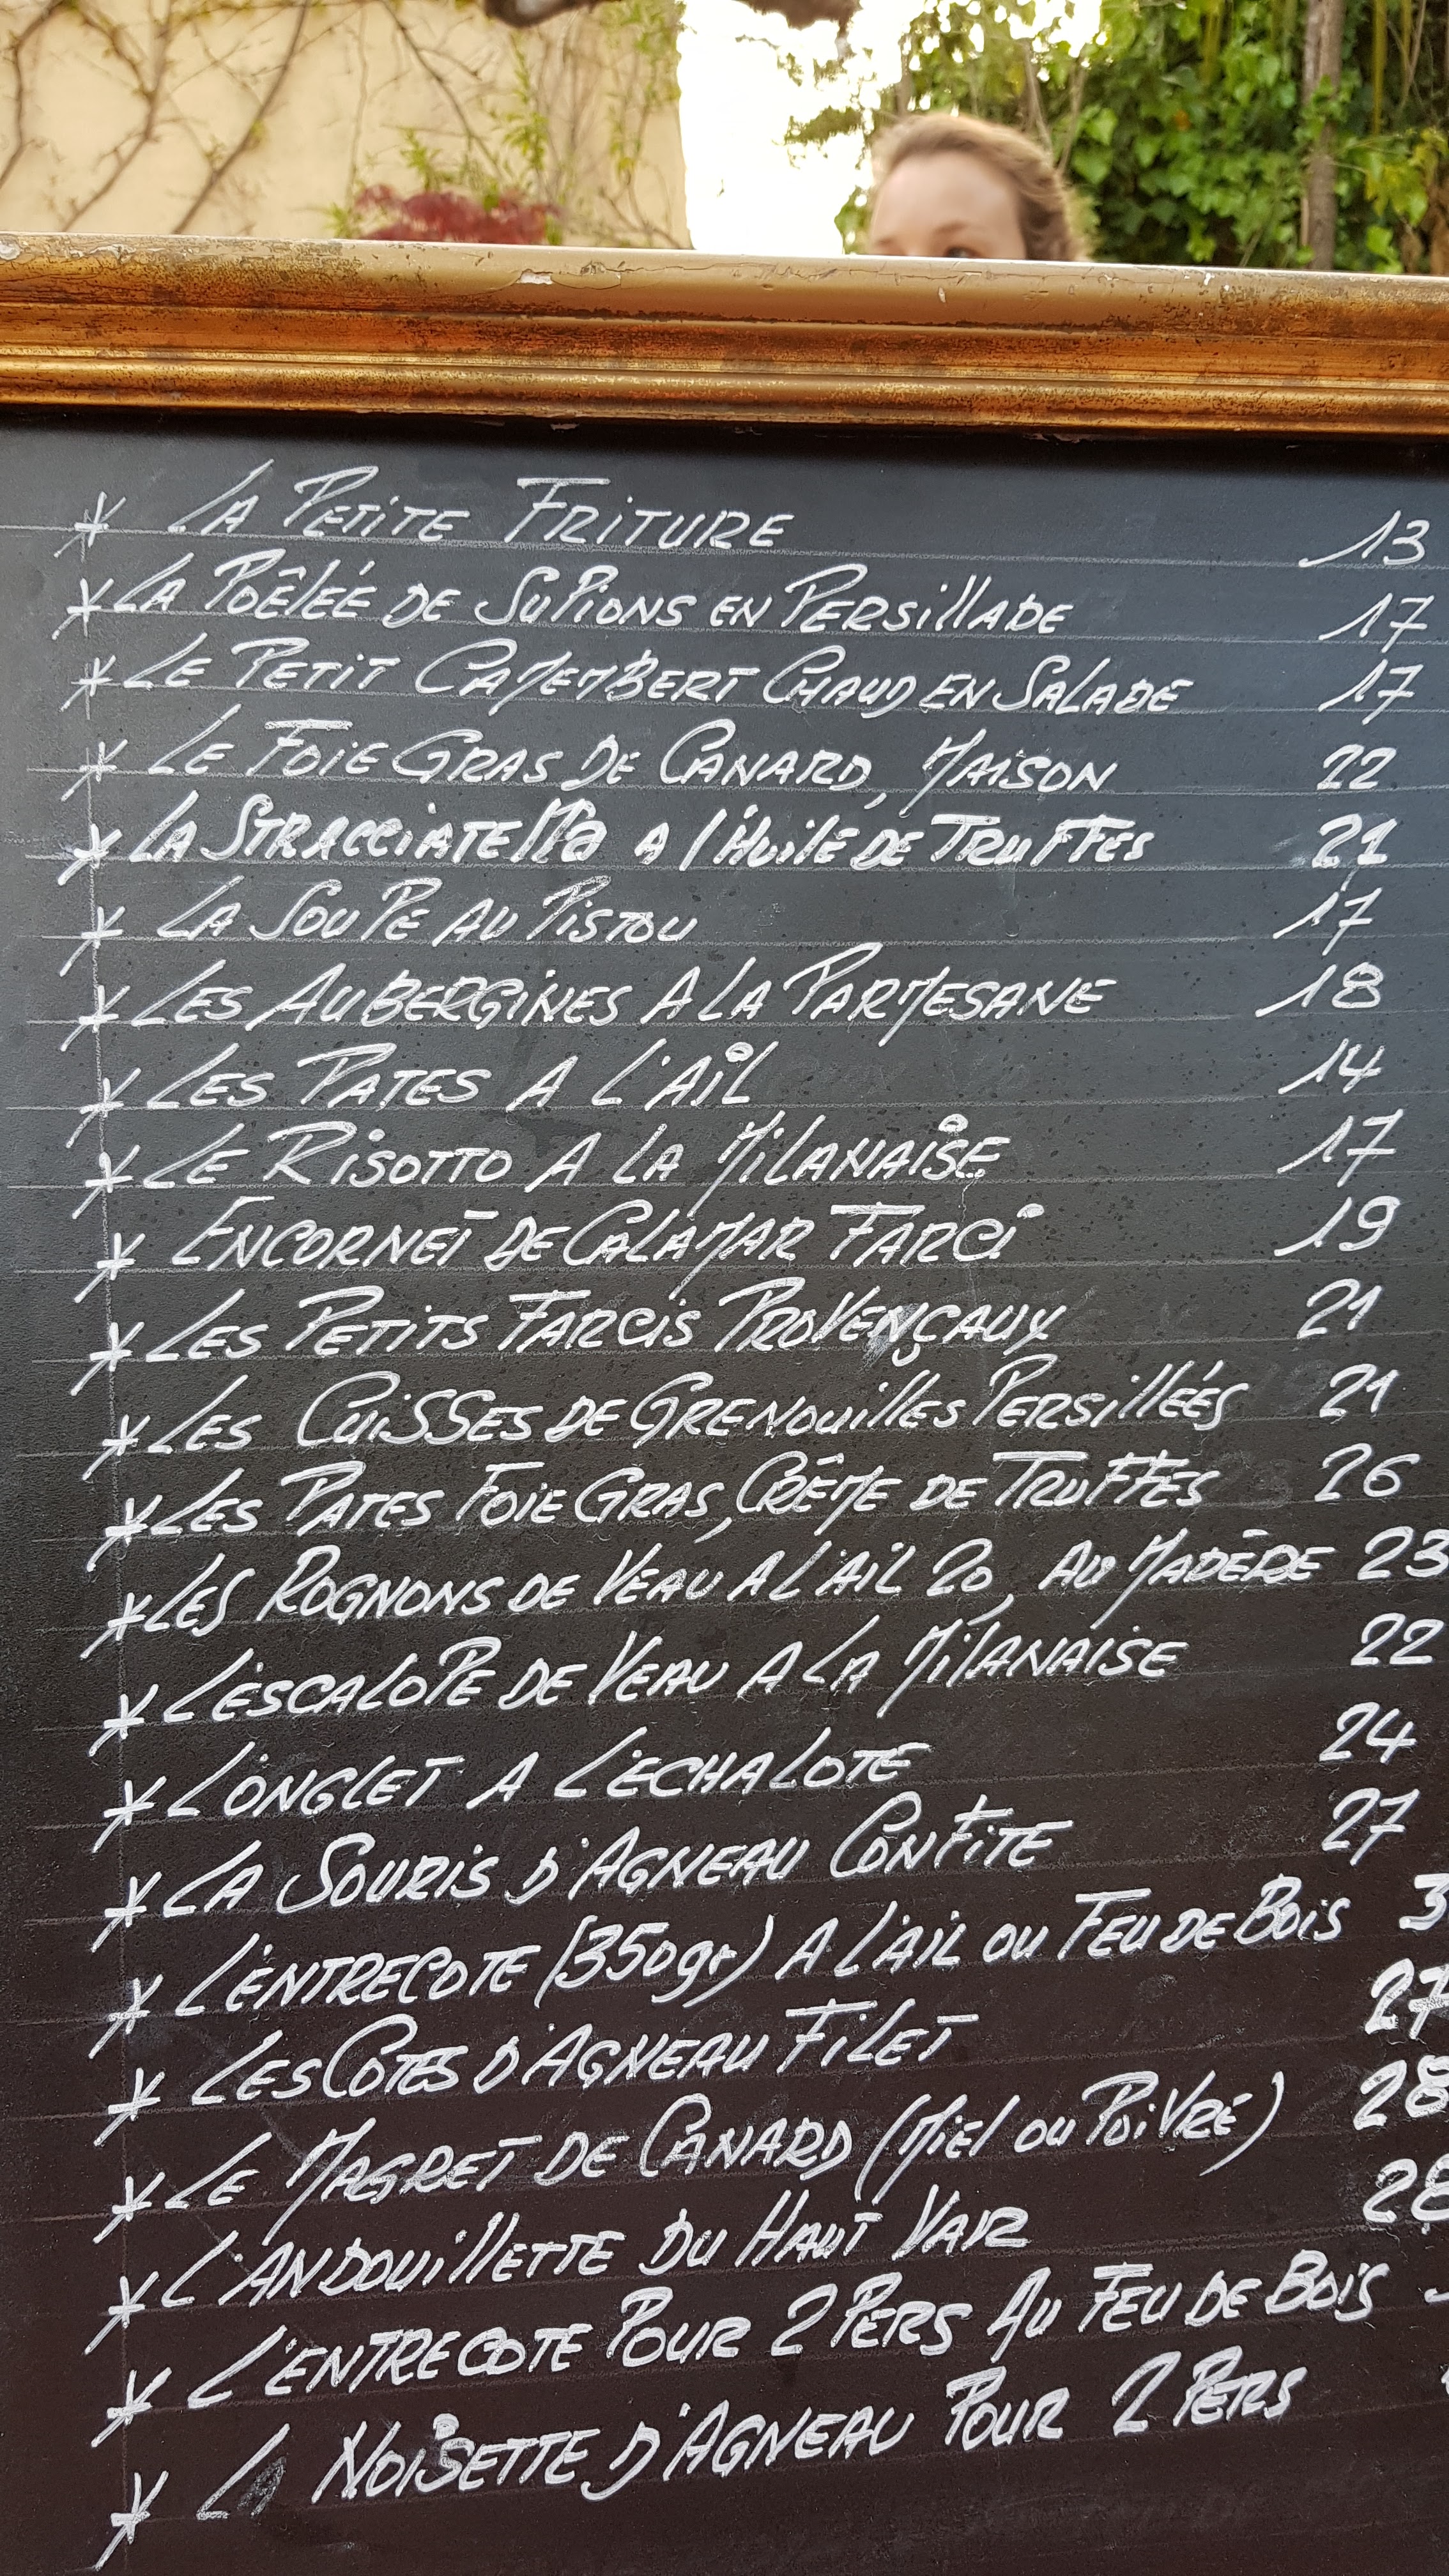 * LA PETITE FRITURE 13
* LA POÊLÉE DE SUPIONS EN PERSILLADE 17
* LE PETIT CAMEMBERT CHAUD EN SALADE 17
* LE FOIE GRAS DE CANARD, MAISON 22
* LA STRACCIATELLA A L'HUILE DE TRUFFES 21
* LA SOUPE AU PISTOU 17
* LES AUBERGINES A LA PARMESANE 18
* LES PATES A L'AIL 14
* LE RISOTTO A LA MILANAISE 17
* ENCORNET DE CALAMAR FARCI 19
* LES PETITS FARCIS PROVENÇAUX 21
* LES CUISSES DE GRENOUILLES PERSILLÉÉS 21
* LES PATES FOIE GRAS, CRÊME DE TRUFFES 26
* LES ROGNONS DE VEAU A L'AIL 20, AU MADÈDE 23
* L'ESCALOPE DE VEAU A LA MILANAISE 22
* L'ONGLET A L'ECHALOTE 24
* LA SOURIS D'AGNEAU CONFITE 27
* L'ENTRECOTE (350gr) A L'AIL OU FEU DE BOIS 3
* LES COTES D'AGNEAU FILET 27
* LE MAGRET DE CANARD (MIEL OU POIVRE) 28
* L'ANDOUILLETTE DU HAUT VAR 28
* L'ENTRECOTE POUR 2 PERS AU FEU DE BOIS
* LA NOISETTE D'AGNEAU POUR 2 PERS